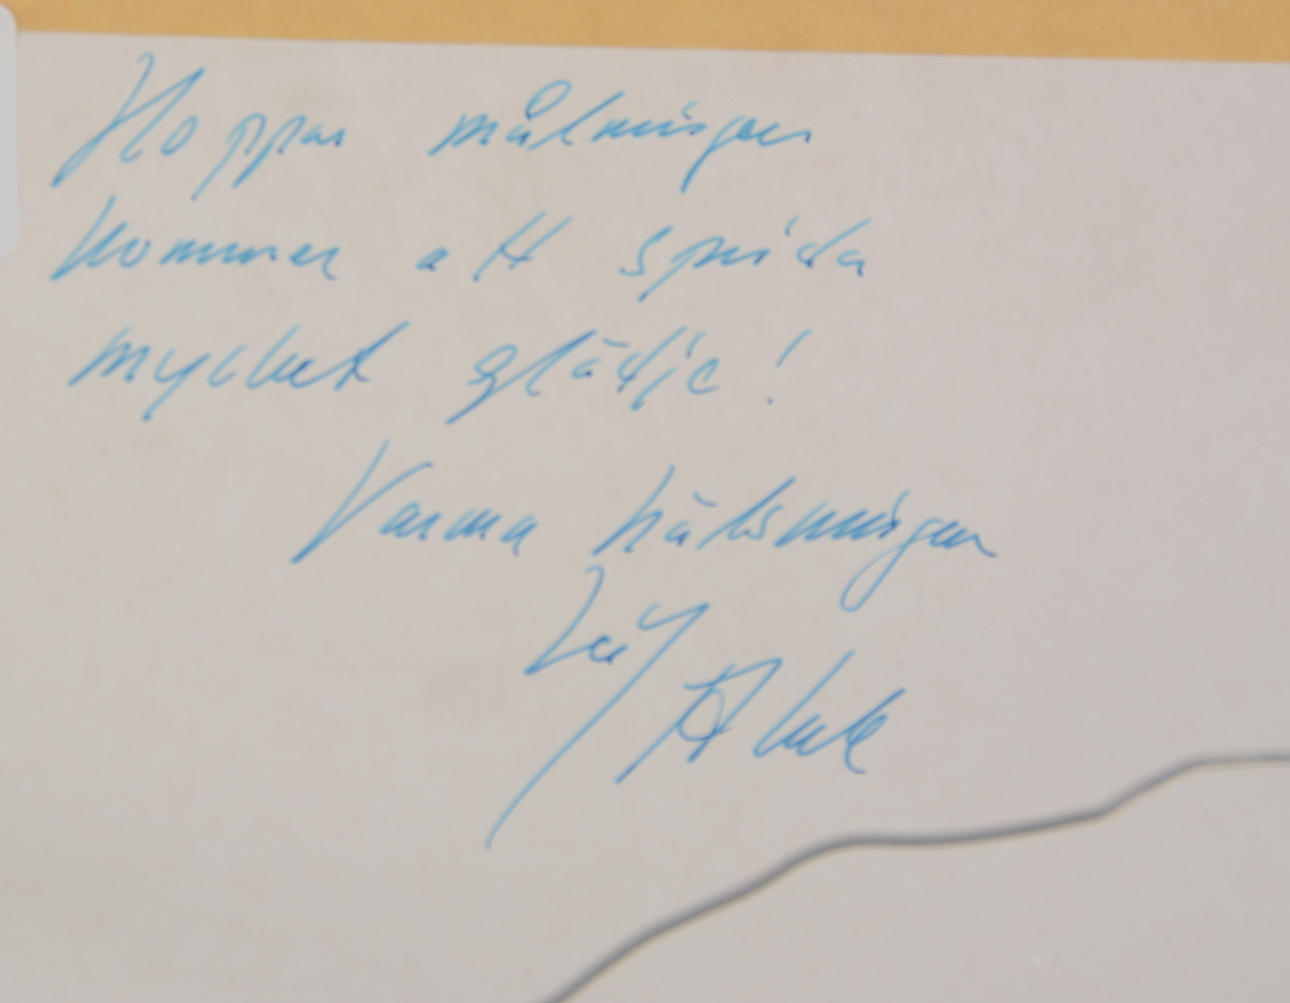 Hoppas målningen
kommer att sprida
mycket glädje!
Varma hälsningar